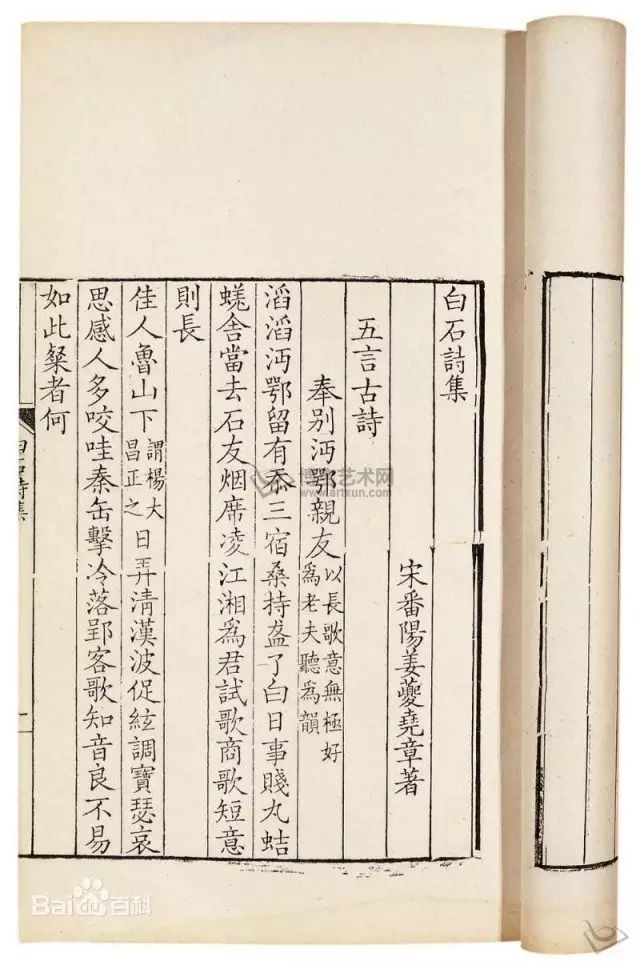 白石詩集
宋番陽姜夔堯章著
五言古詩
奉别沔鄂親友以長歌意無極好
爲老夫聽爲韻
滔滔沔鄂留有忝三宿桑持盋了白日事賤丸蛣
蜣舍當去石友烟席凌江湘爲君試歌商歌短意
則長
佳人魯山下謂楊大
昌正之日弄清漢波促絃調寶瑟哀
思感人多咬哇秦缶擊冷落郢客歌知音良不易
如此粲者何
白石詩集
一
博宝艺术网
www.artxun.com
Bai百科